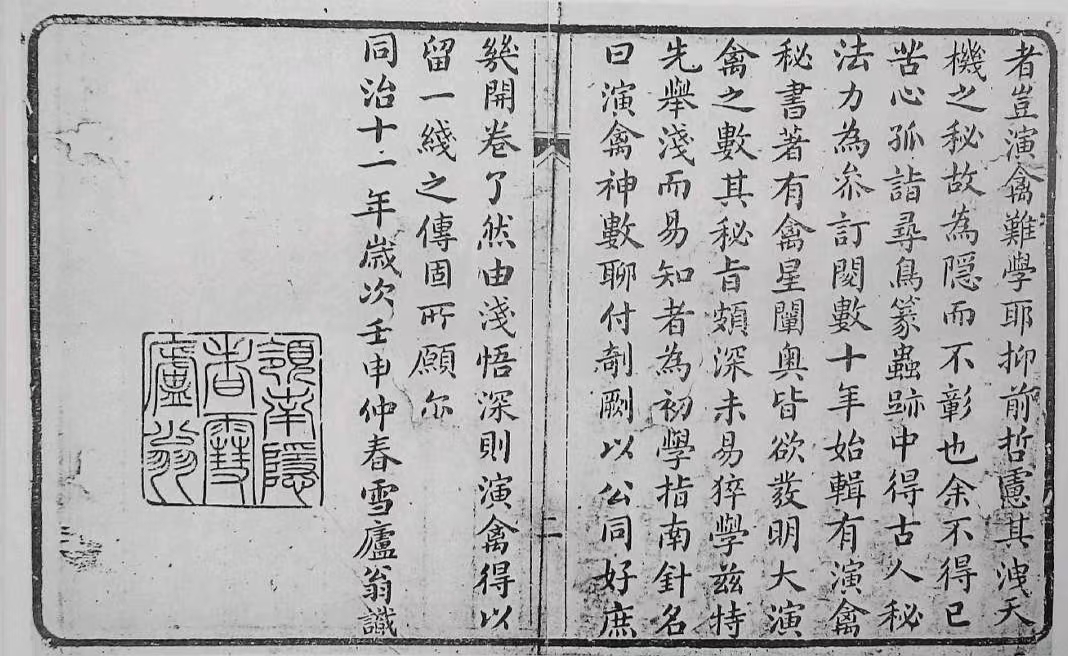 者豈演禽難學耶抑前哲慮其洩天
機之秘故為隱而不彰也余不得已
苦心孤詣尋鳥篆蟲跡中得古人秘
法力為叅訂閱數十年始輯有演禽
秘書著有禽星闡奧皆欲發明大演
禽之數其秘旨頗深未易猝學茲特
先舉淺而易知者為初學指南針名
曰演禽神數聊付剞劂以公同好庶
二
幾開卷了然由淺悟深則演禽得以
留一綫之傳固所願尒
同治十二年歲次壬申仲春雪廬翁識
領南隱
者雪
廬翁